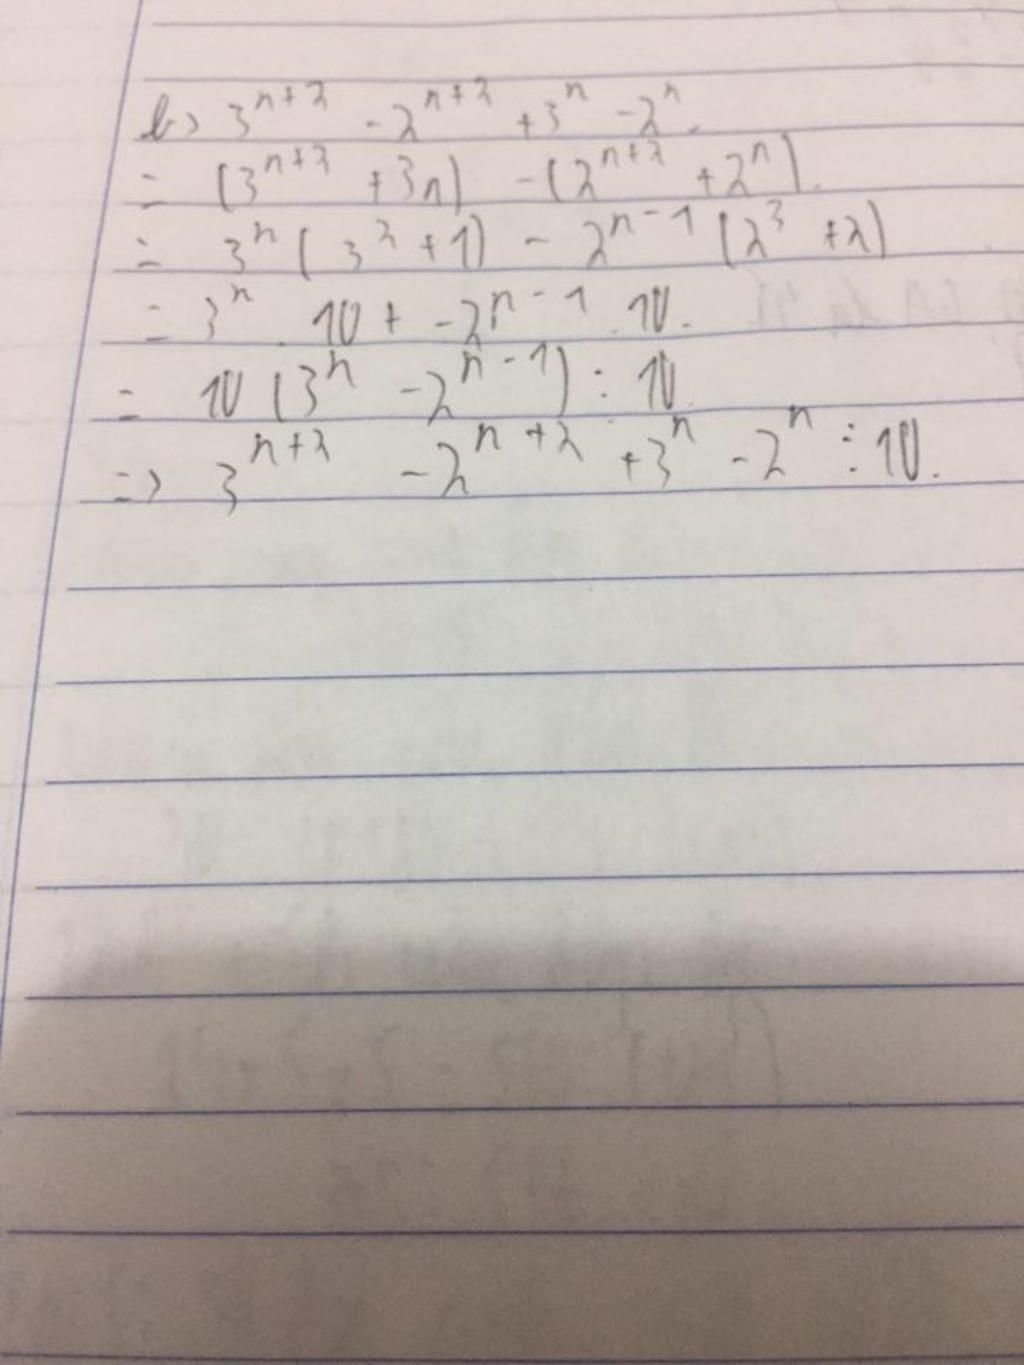 b> 3^{n+2} - 2^{n+2} + 3^n - 2^n.
= (3^{n+2} + 3n) - (2^{n+2} + 2^n).
= 3^n (3^2 + 1) - 2^{n-1} (2^3 + 2)
= 3^n . 10 + - 2^{n-1} . 10.
= 10 (3^n - 2^{n-1}) ⋮ 10.
=> 3^{n+2} - 2^{n+2} + 3^n - 2^n ⋮ 10.